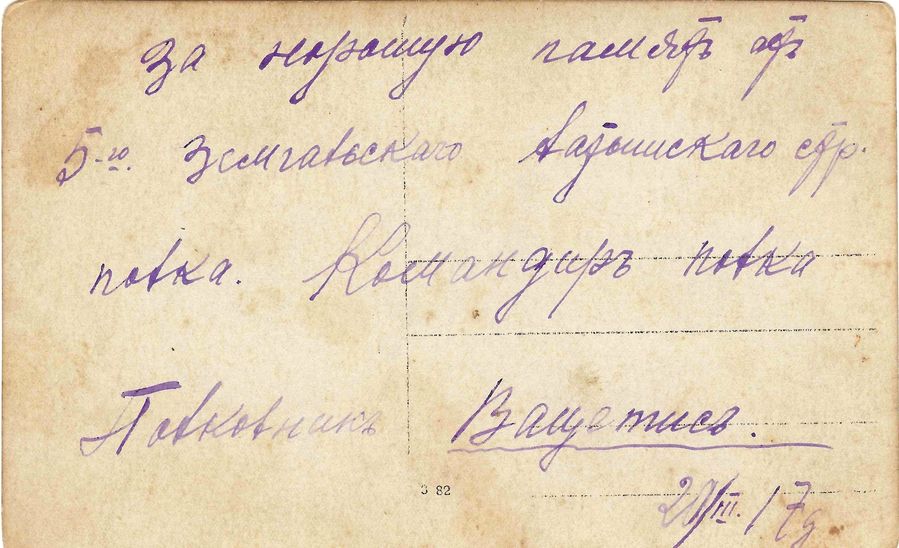 За хорошую память отъ
5-го. Земгальскаго Латышскаго стр.
полка. Командиръ полка
Полковникъ Вацетисъ.
3 82
29/III. 17г